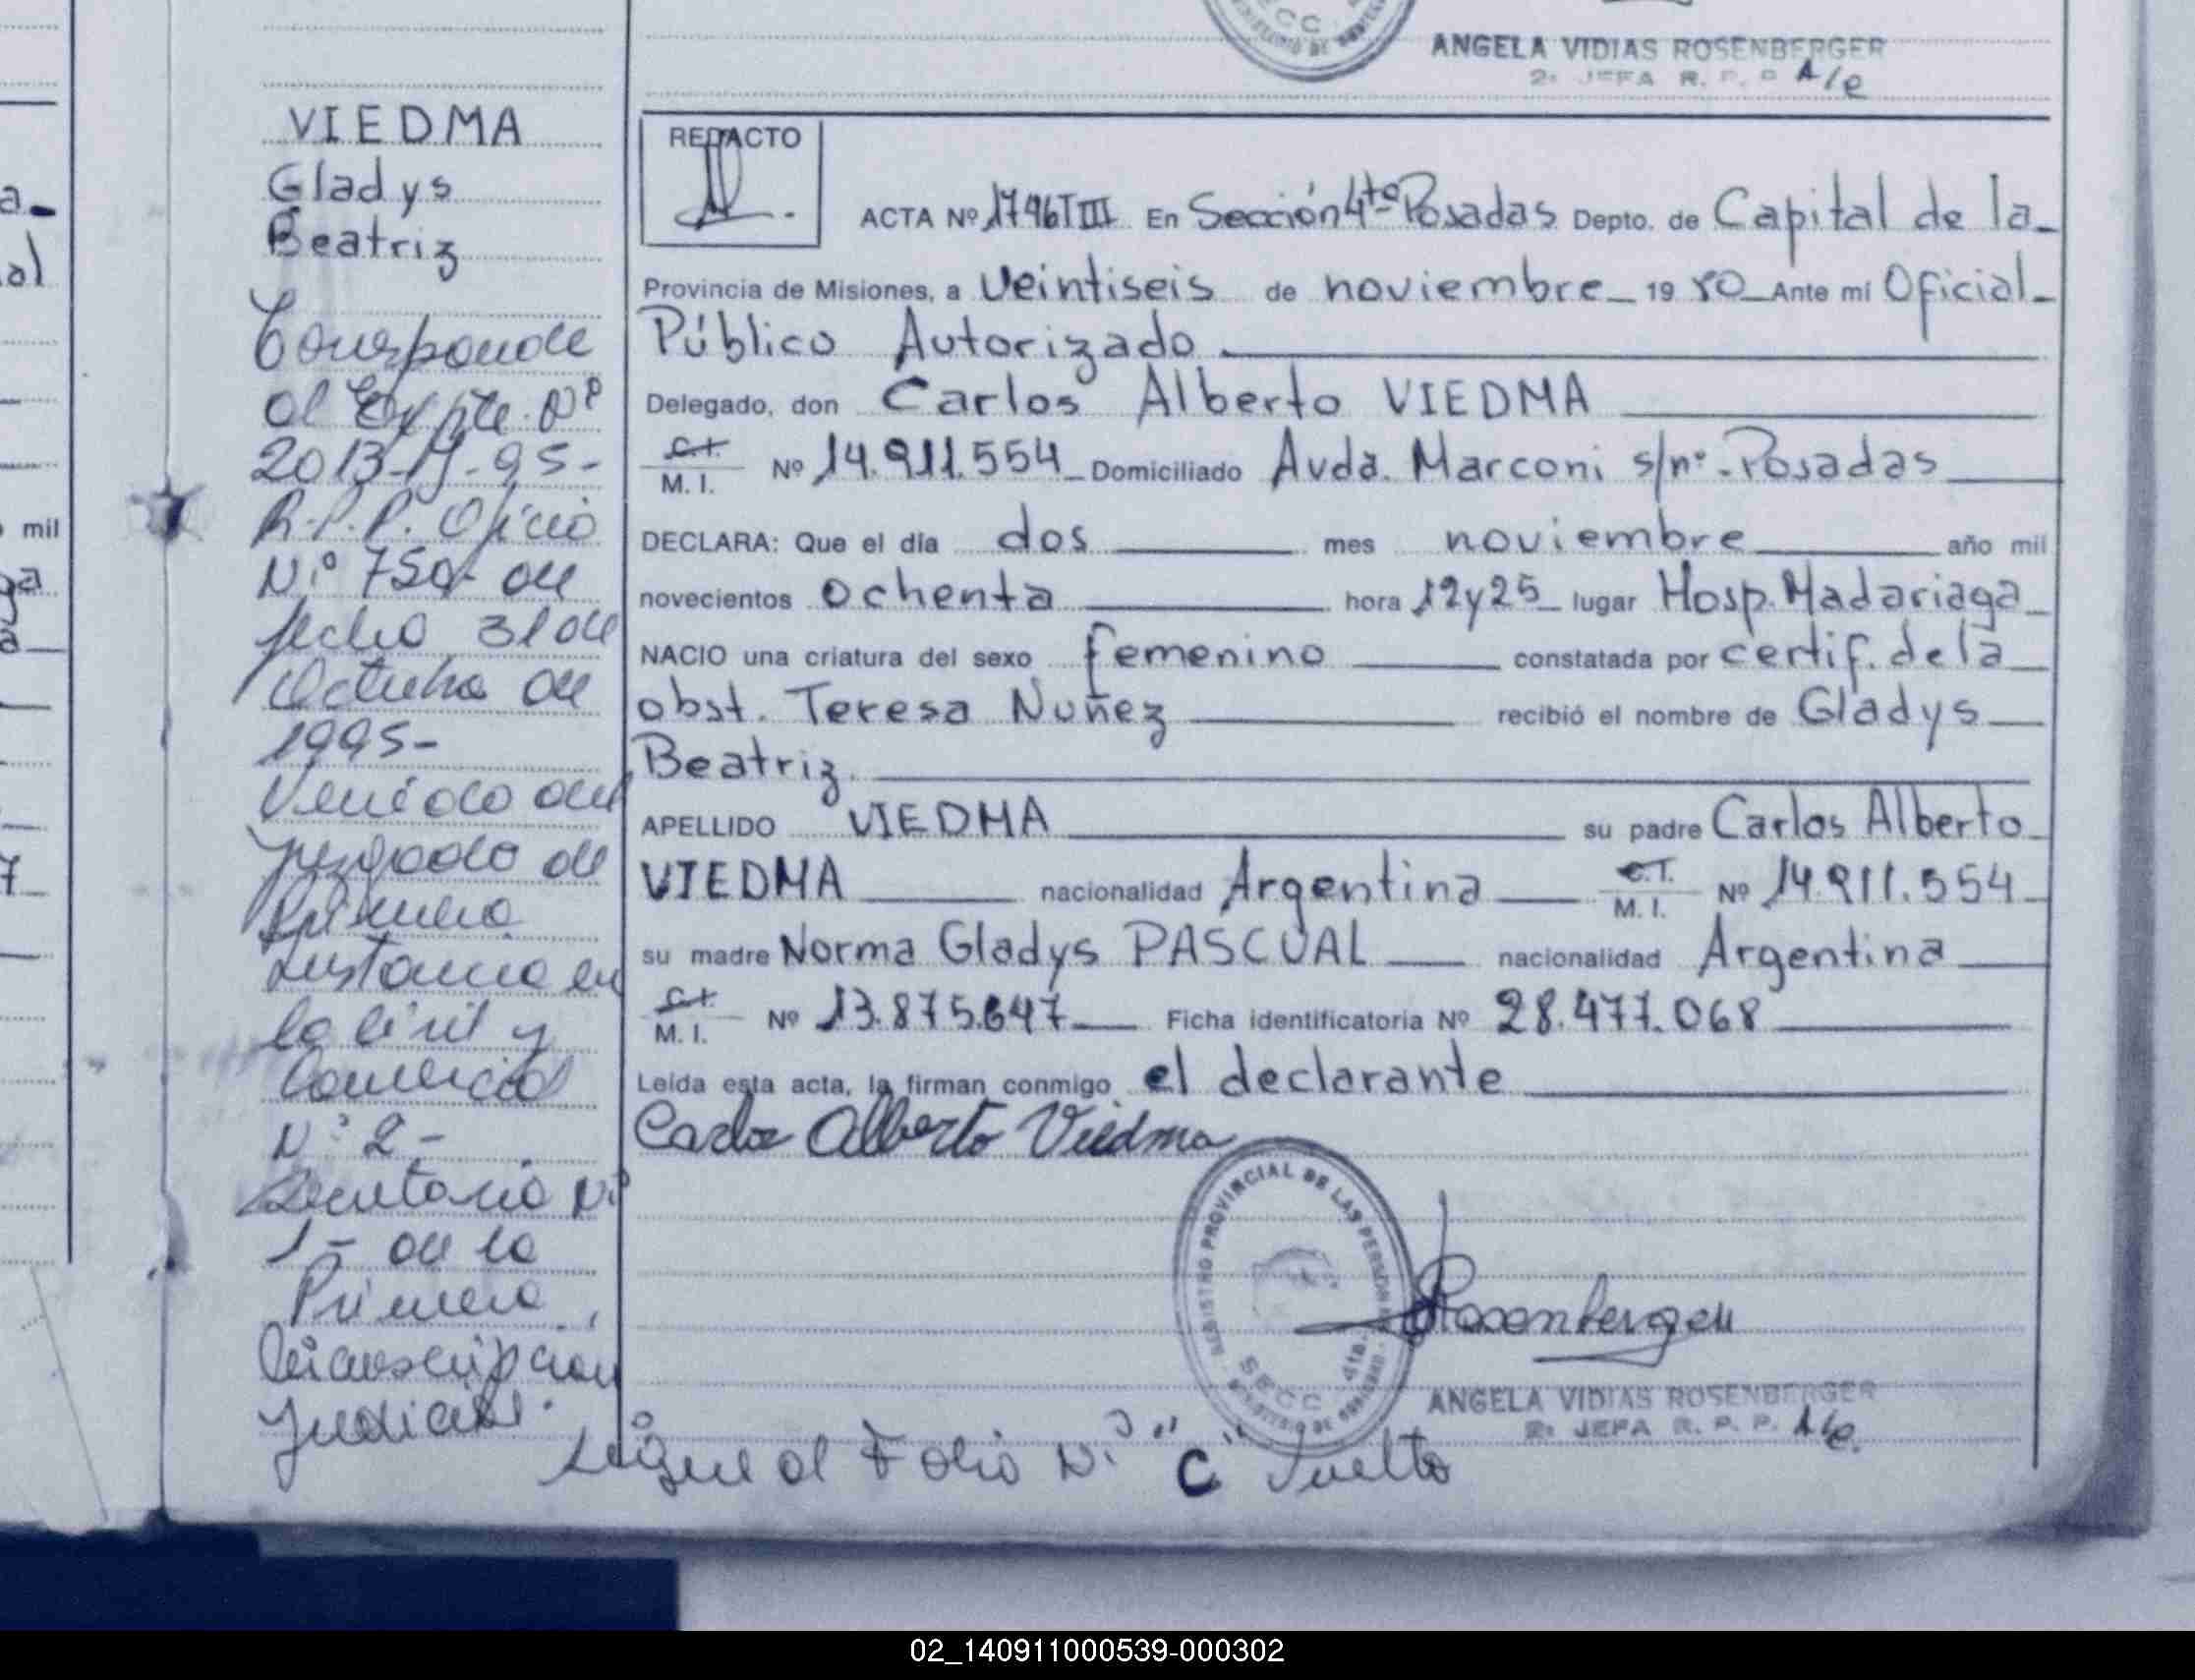 ANGELA VIDIAS ROSENBERGER
2ª JEFA R. P. P. A/c
VIEDMA
Gladys
Beatriz
Corresponde
al Expte. Nº
2013-M-95-
R.P.P. Oficio
Nº 750- de
fecha 31 de
Octubre de
1995-
Venido del
Juzgado de
Primera
Instancia en
lo Civil y
Comercial
Nº 2-
Secretaría Nº
1- de la
Primera
Circunscripción
Judicial.
REDACTO
ACTA Nº 1796 T III En Sección 4ta Posadas Depto. de Capital de la
Provincia de Misiones, a veintiseis de noviembre 19 80 Ante mí Oficial
Público Autorizado.
Delegado, don Carlos Alberto VIEDMA
C.I. M. I. Nº 14.911.554 Domiciliado Avda. Marconi s/nº - Posadas
DECLARA: Que el día dos mes noviembre año mil
novecientos ochenta hora 12 y 25 lugar Hosp. Madariaga
NACIO una criatura del sexo femenino constatada por certif. de la
obst. Teresa Nuñez recibió el nombre de Gladys
Beatriz.
APELLIDO VIEDMA su padre Carlos Alberto
VIEDMA nacionalidad Argentina C.I. M. I. Nº 14.911.554
su madre Norma Gladys PASCUAL nacionalidad Argentina
C.I. M. I. Nº 13.875.647 Ficha identificatoria Nº 28.477.068
Leída esta acta, la firman conmigo el declarante
Carlos Alberto Viedma
REGISTRO PROVINCIAL DE LAS PERSONAS
SECC. 4ta.
MINISTERIO DE GOBIERNO
Rosenberger
ANGELA VIDIAS ROSENBERGER
2ª JEFA R. P. P. A/c.
Sigue al Folio Nº "C" Vuelto
02_140911000539-000302